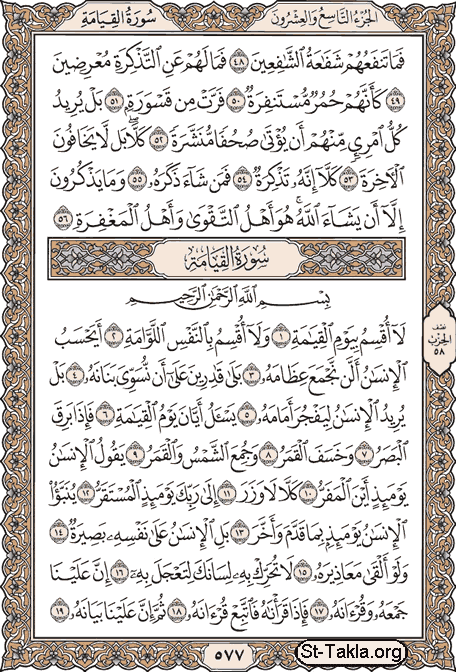 الجزء التاسع والعشرون سورة القيامة
فَمَا تَنفَعُهُمْ شَفَٰعَةُ ٱلشَّٰفِعِينَ ٤٨ فَمَا لَهُمْ عَنِ ٱلتَّذْكِرَةِ مُعْرِضِينَ
٤٩ كَأَنَّهُمْ حُمُرٌ مُّسْتَنفِرَةٌ ٥٠ فَرَّتْ مِن قَسْوَرَةٍ ٥١ بَلْ يُرِيدُ
كُلُّ ٱمْرِئٍ مِّنْهُمْ أَن يُؤْتَىٰ صُحُفًا مُّنَشَّرَةً ٥٢ كَلَّا ۖ بَل لَّا يَخَافُونَ
ٱلْءَاخِرَةَ ٥٣ كَلَّآ إِنَّهُۥ تَذْكِرَةٌ ٥٤ فَمَن شَآءَ ذَكَرَهُۥ ٥٥ وَمَا يَذْكُرُونَ
إِلَّآ أَن يَشَآءَ ٱللَّهُ ۚ هُوَ أَهْلُ ٱلتَّقْوَىٰ وَأَهْلُ ٱلْمَغْفِرَةِ ٥٦
سورة القيامة
بِسْمِ ٱللَّهِ ٱلرَّحْمَٰنِ ٱلرَّحِيمِ
لَآ أُقْسِمُ بِيَوْمِ ٱلْقِيَٰمَةِ ١ وَلَآ أُقْسِمُ بِٱلنَّفْسِ ٱللَّوَّامَةِ ٢ أَيَحْسَبُ
ٱلْإِنسَٰنُ أَلَّن نَّجْمَعَ عِظَامَهُۥ ٣ بَلَىٰ قَٰدِرِينَ عَلَىٰٓ أَن نُّسَوِّىَ بَنَانَهُۥ ٤ بَلْ
يُرِيدُ ٱلْإِنسَٰنُ لِيَفْجُرَ أَمَامَهُۥ ٥ يَسْـَٔلُ أَيَّانَ يَوْمُ ٱلْقِيَٰمَةِ ٦ فَإِذَا بَرِقَ
ٱلْبَصَرُ ٧ وَخَسَفَ ٱلْقَمَرُ ٨ وَجُمِعَ ٱلشَّمْسُ وَٱلْقَمَرُ ٩ يَقُولُ ٱلْإِنسَٰنُ
يَوْمَئِذٍ أَيْنَ ٱلْمَفَرُّ ١٠ كَلَّا لَا وَزَرَ ١١ إِلَىٰ رَبِّكَ يَوْمَئِذٍ ٱلْمُسْتَقَرُّ ١٢ يُنَبَّؤُا۟
ٱلْإِنسَٰنُ يَوْمَئِذٍۭ بِمَا قَدَّمَ وَأَخَّرَ ١٣ بَلِ ٱلْإِنسَٰنُ عَلَىٰ نَفْسِهِۦ بَصِيرَةٌ ١٤
وَلَوْ أَلْقَىٰ مَعَاذِيرَهُۥ ١٥ لَا تُحَرِّكْ بِهِۦ لِسَانَكَ لِتَعْجَلَ بِهِۦٓ ١٦ إِنَّ عَلَيْنَا
جَمْعَهُۥ وَقُرْءَانَهُۥ ١٧ فَإِذَا قَرَأْنَٰهُ فَٱتَّبِعْ قُرْءَانَهُۥ ١٨ ثُمَّ إِنَّ عَلَيْنَا بَيَانَهُۥ ١٩
نصف
الحزب
٥٨
٥٧٧
St-Takla.org